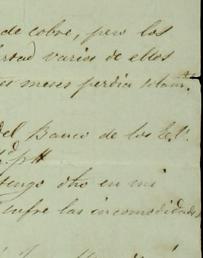 de cobre, pero los
varios de ellos
meses perdia
del Banco de los E.U.
tengo otro en mi
sufre las incomodidades